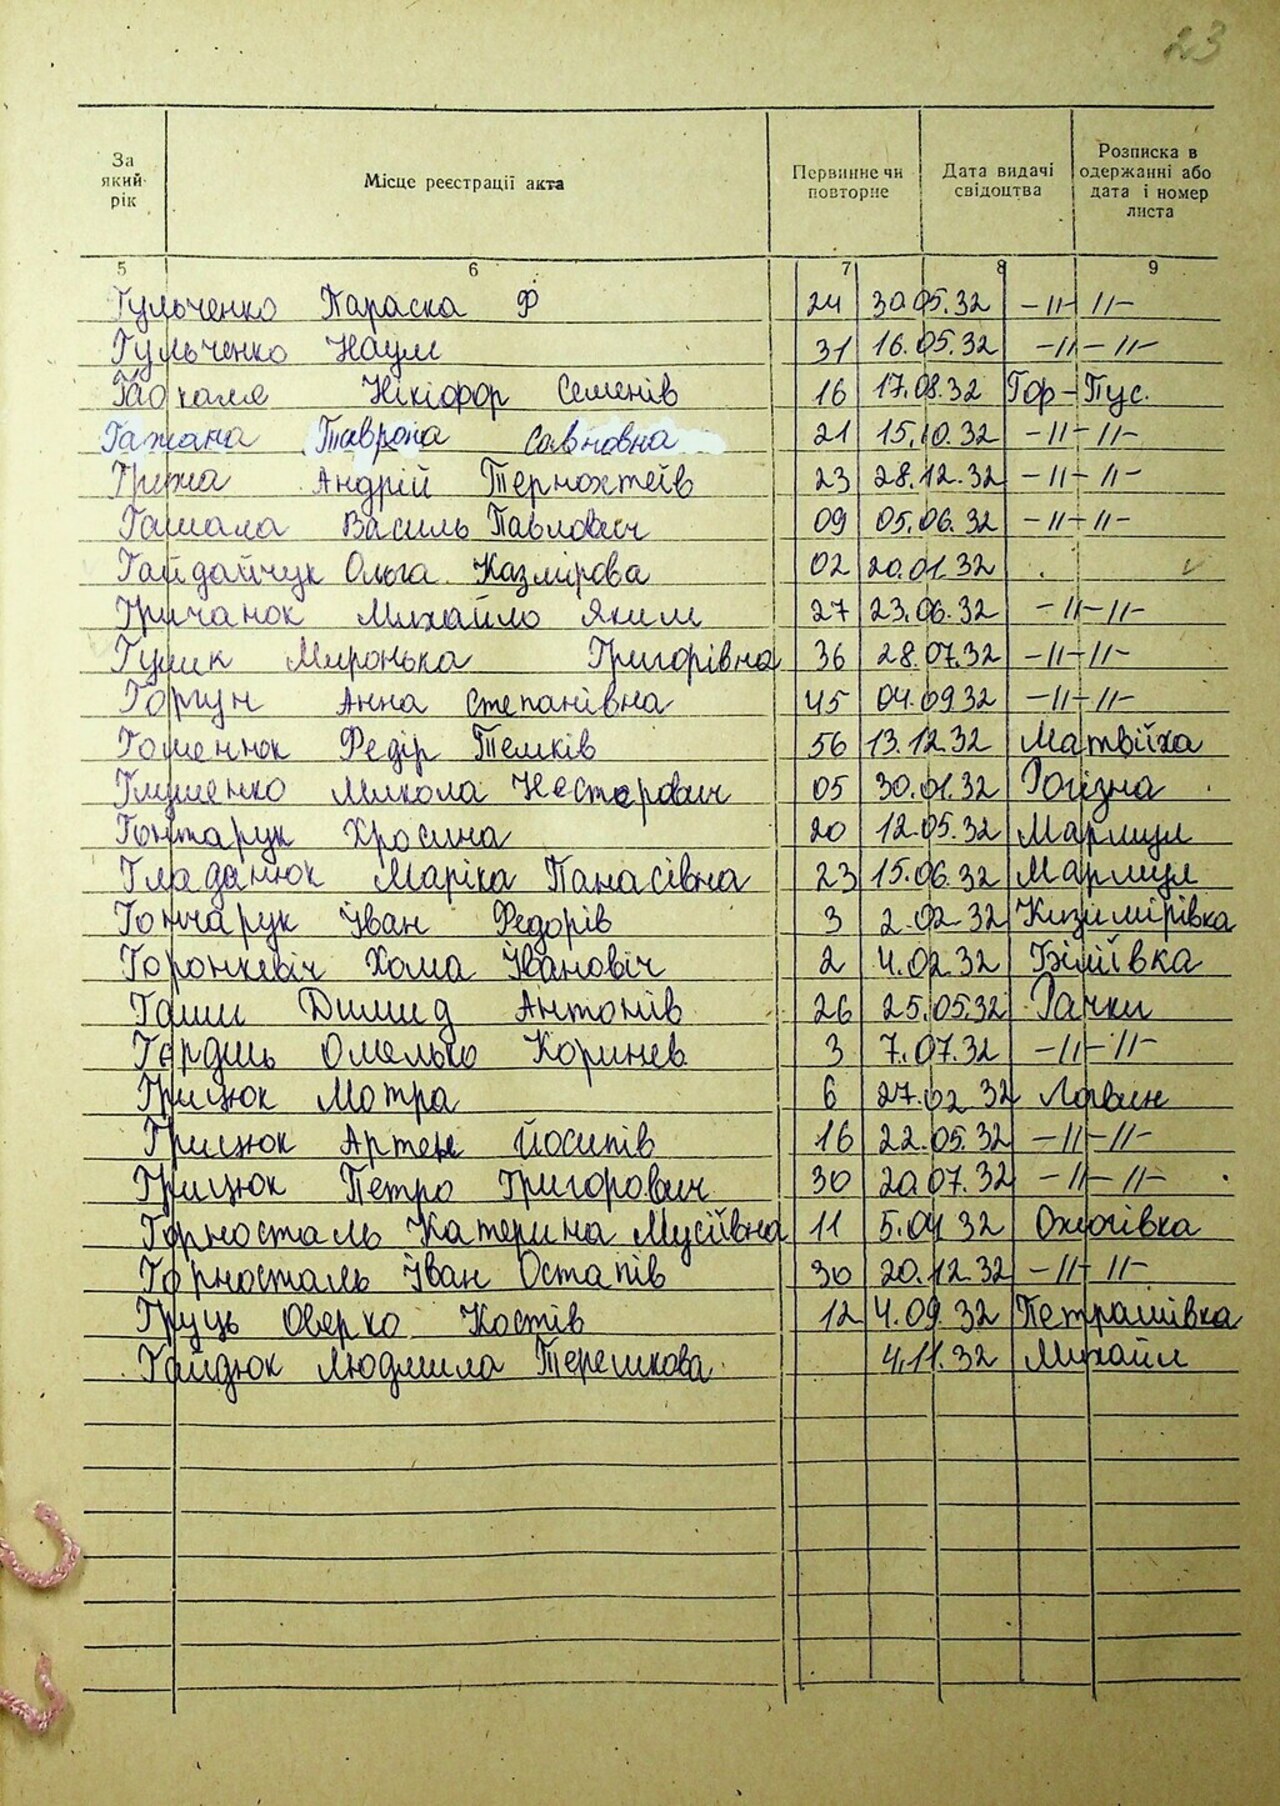 23
За який рік
Місце реєстрації акта
Первинне чи повторне
Дата видачі свідоцтва
Розписка в одержанні або дата і номер листа
5 6 7 8 9
Гульченко Параска Ф 24 30.05.32 -//- //-
Гульченко Наум 31 16.05.32 -//- //-
Нікіфор Семенів 16 17.08.32 Гор-Пус.
Гажана Савновна 21 15.10.32 -//- //-
Андрій 23 28.12.32 -//- //-
Василь Павлович 09 05.06.32 -//- //-
Гайдайчук Ольга Казмірова 02 20.01.32
Гричанюк Михайло Яким 27 23.06.32 -//- //-
Миронька Григорівна 36 28.07.32 -//- //-
Горгун Анна Степанівна 45 04.09.32 -//- //-
Гоменюк Федір Темків 56 13.12.32 Матвійха
Глушенко Микола Несторович 05 30.01.32 Рогізна
Гонтарук Хросина 20 12.05.32
Гладанюк Маріка Панасівна 23 15.06.32
Гончарук Іван Федорів 3 2.02.32 Кизимірівка
Горонкевіч Хома Івановіч 2 4.02.32 Біліївка
Антонів 26 25.05.32 Рачки
Омелько Коринев 3 7.07.32 -//- //-
Грицюк Мотра 6 27.02.32
Грицюк Артем Йосипів 16 22.05.32 -//- //-
Грицюк Петро Григорович 30 20.07.32 -//- //-
Горносталь Катерина Мусіївна 11 5.04.32 Ожогівка
Горносталь Іван Остапів 30 20.12.32 -//- //-
Груць Оверко Костів 12 4.09.32 Петрашівка
Гайдюк Людмила Терешкова 4.11.32 Михайл